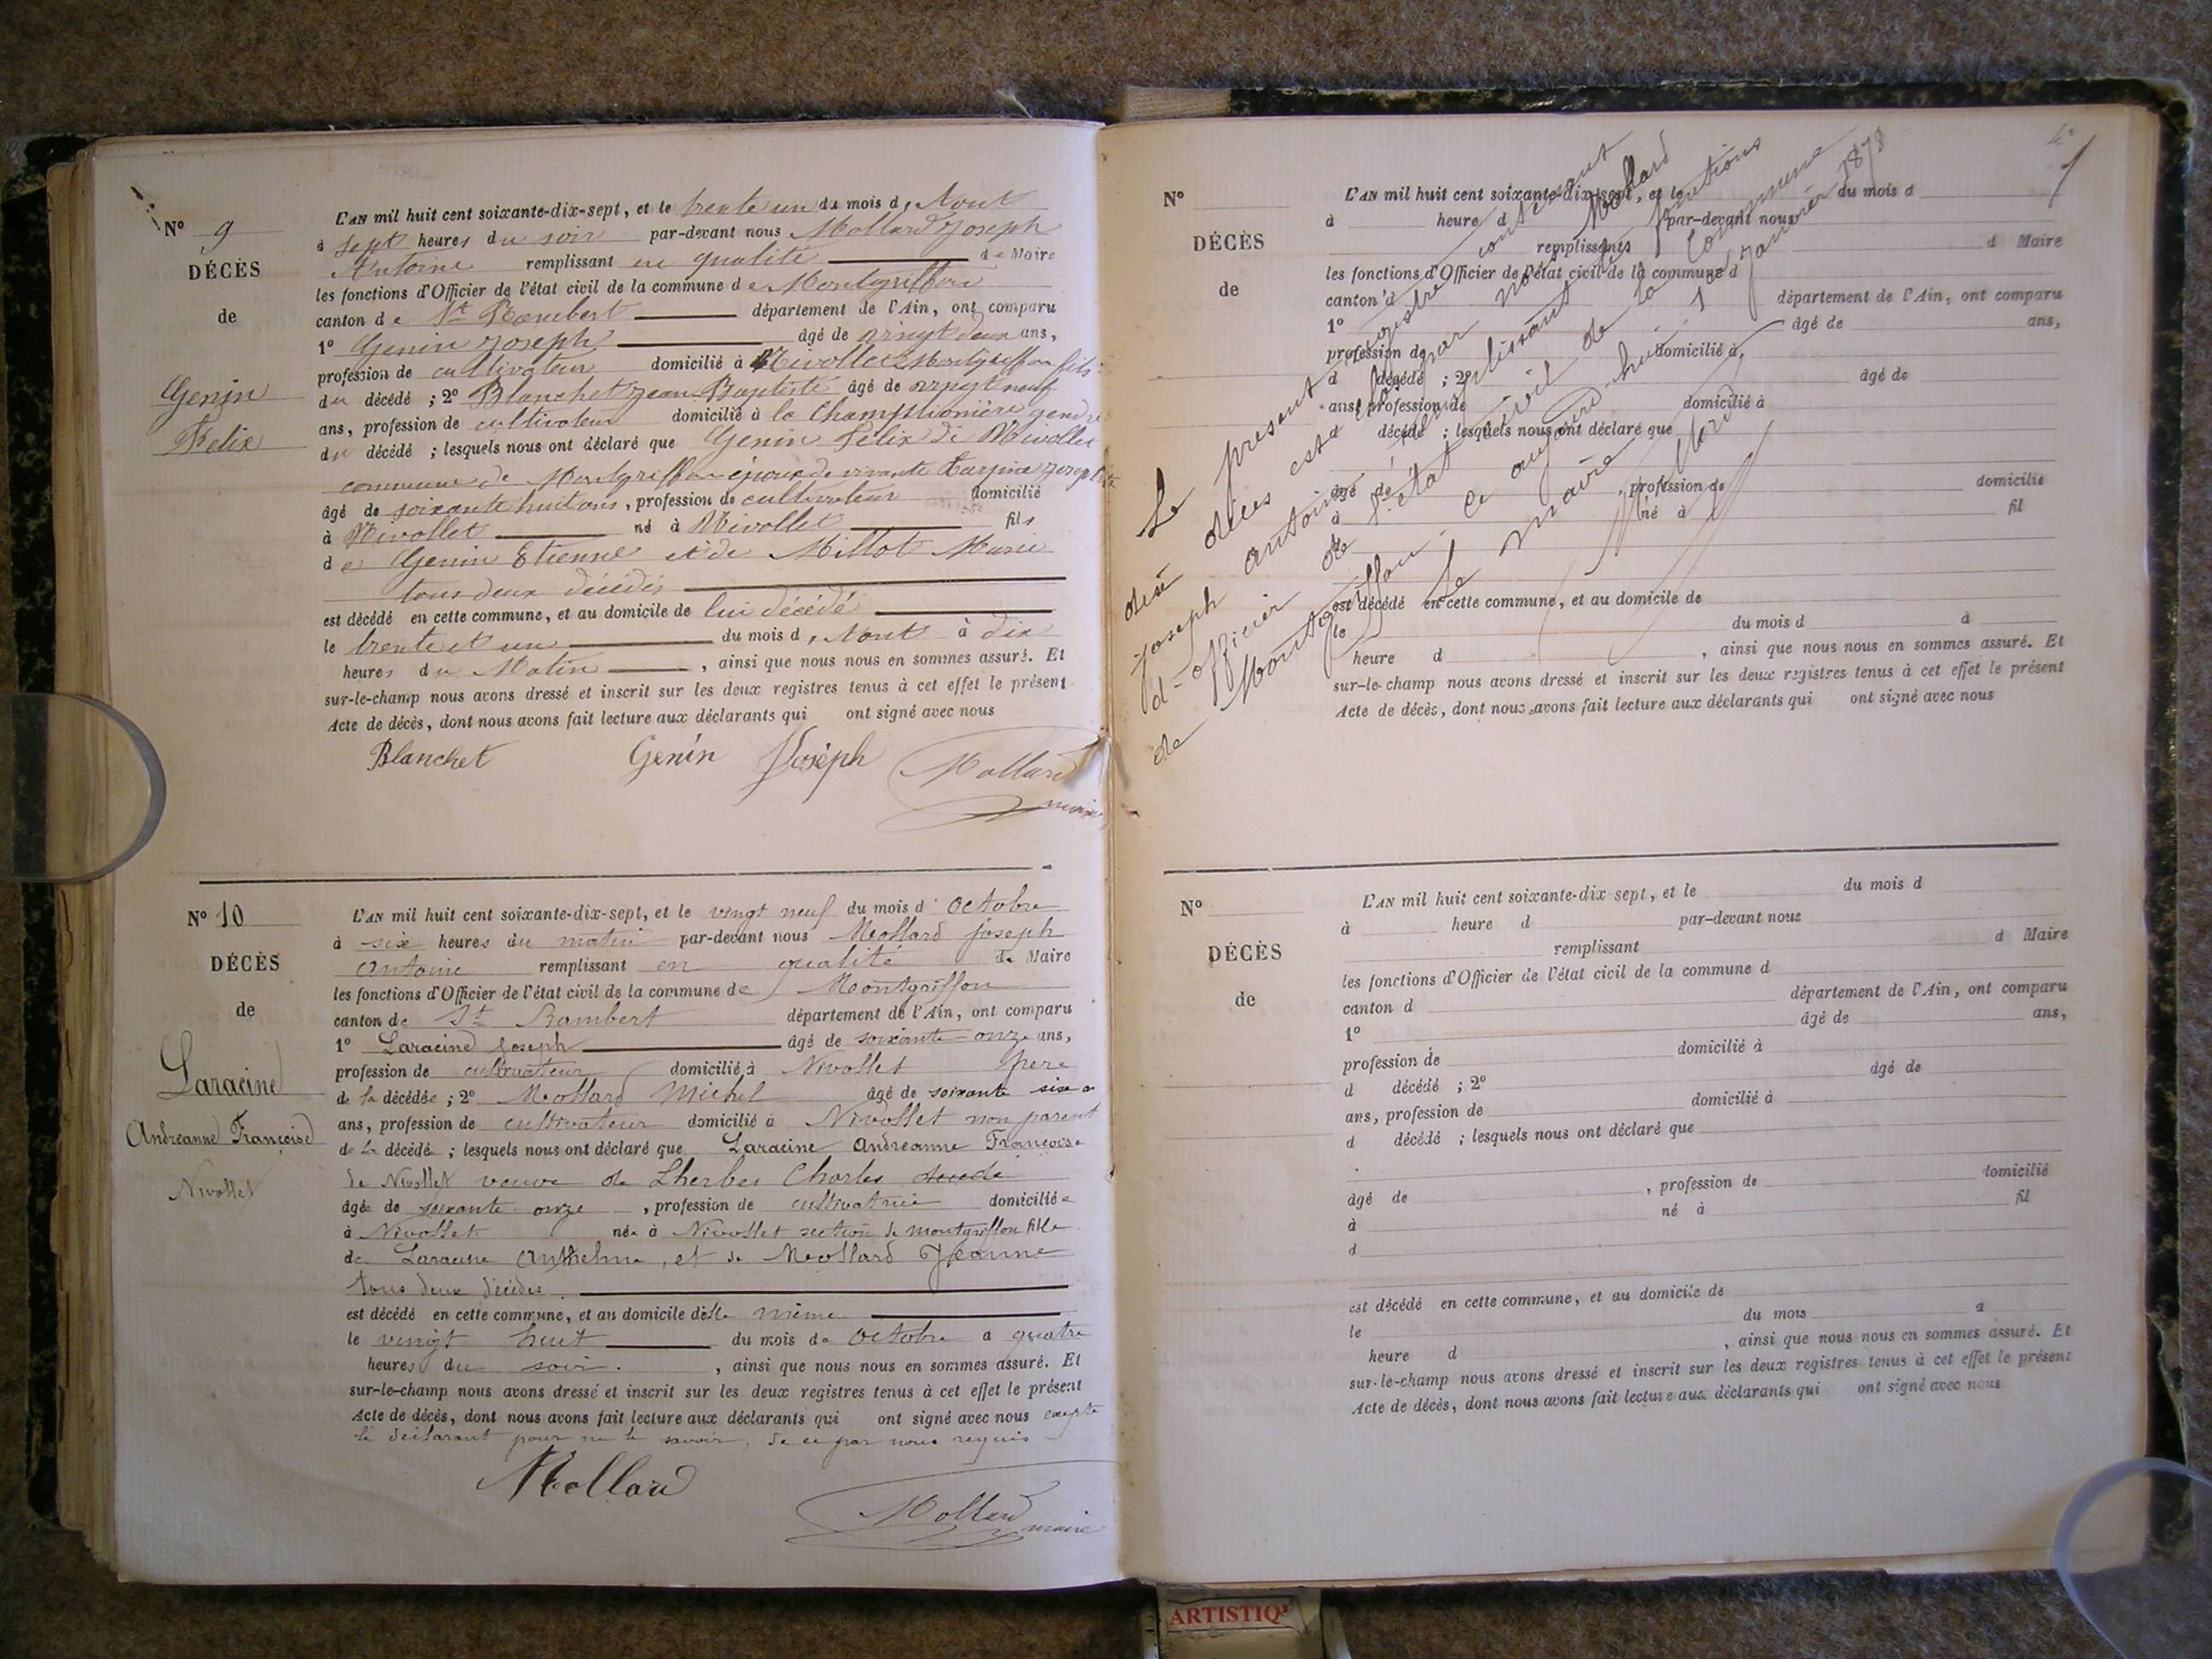 N° 9
DÉCÈS
de
Genin
Felix
L'AN mil huit cent soixante-dix-sept, et le trente un du mois d'Aout
à sept heures du soir par-devant nous Mollard Joseph
Antoine remplissant en qualité de Maire
les fonctions d'Officier de l'état civil de la commune de Montgriffon
canton de St Rambert département de l'Ain, ont comparu
1° Genin Joseph âgé de vingt deux ans,
profession de cultivateur domicilié à Nivollet Montgriffon fils
du décédé ; 2° Blanchet Jean Baptiste âgé de vingt neuf
ans, profession de cultivateur domicilié à la gendre
du décédé ; lesquels nous ont déclaré que Genin Félix de Nivollet
commune de Montgriffon époux de vivante
âgé de soixante huit ans, profession de cultivateur domicilié
à Nivollet né à Nivollet fils
de Genin Etienne et de Millot Marie
tous deux décédés
est décédé en cette commune, et au domicile de lui décédé
le trente et un du mois d'Aout à dix
heures du Matin, ainsi que nous nous en sommes assuré. Et
sur-le-champ nous avons dressé et inscrit sur les deux registres tenus à cet effet le présent
Acte de décès, dont nous avons fait lecture aux déclarants qui ont signé avec nous
Blanchet Genin Joséph Mollard
maire
N° 10
DÉCÈS
de
Laracine
Andréanne Françoise
Nivollet
L'AN mil huit cent soixante-dix-sept, et le vingt neuf du mois d'Octobre
à six heures du matin par-devant nous Mollard joseph
antoine remplissant en qualité de Maire
les fonctions d'Officier de l'état civil de la commune de Montgriffon
canton de St Rambert département de l'Ain, ont comparu
1° Laracine joseph âgé de soixante-onze ans,
profession de cultivateur domicilié à Nivollet frere
de la décédée ; 2° Mollard Michel âgé de soixante six
ans, profession de cultivateur domicilié à Nivollet non parent
de la décédé ; lesquels nous ont déclaré que Laracine Andréanne Françoise
de Nivollet veuve de Lherbes Charles
âgée de soixante onze, profession de cultivatrice domiciliée
à Nivollet née à Nivollet section de montgriffon fille
de Laracine Anthelme, et de Mollard Jeanne
tous deux décédés.
est décédé en cette commune, et au domicile d'elle même
le vingt huit du mois de Octobre a quatre
heures du soir., ainsi que nous nous en sommes assuré. Et
sur-le-champ nous avons dressé et inscrit sur les deux registres tenus à cet effet le présent
Acte de décès, dont nous avons fait lecture aux déclarants qui ont signé avec nous
le déclarant pour ne le savoir, de ce par nous requis
Mollard
Mollard
maire
Le présent registre contenant
dix décès est clos par nous Mollard
joseph antoine remplissant les fonctions
d'officier de l'état civil de la Commune
de Montgriffon. ce aujourd-hui 1er Janvier 1878
Le maire
Mollard
N°
DÉCÈS
de
L'AN mil huit cent soixante-dix-sept, et le du mois d
à heure d par-devant nous
remplissant d Maire
les fonctions d'Officier de l'état civil de la commune d
canton d département de l'Ain, ont comparu
1° âgé de ans,
profession de domicilié à
d décédé ; 2° âgé de
ans, profession de domicilié à
d décédé ; lesquels nous ont déclaré que
âgé de , profession de domicilié
à né à fil
d
est décédé en cette commune, et au domicile de
le du mois d à
heure d , ainsi que nous nous en sommes assuré. Et
sur-le-champ nous avons dressé et inscrit sur les deux registres tenus à cet effet le présent
Acte de décès, dont nous avons fait lecture aux déclarants qui ont signé avec nous
N°
DÉCÈS
de
L'AN mil huit cent soixante-dix-sept, et le du mois d
à heure d par-devant nous
remplissant d Maire
les fonctions d'Officier de l'état civil de la commune d
canton d département de l'Ain, ont comparu
1° âgé de ans,
profession de domicilié à
d décédé ; 2° âgé de
ans, profession de domicilié à
d décédé ; lesquels nous ont déclaré que
âgé de , profession de domicilié
à né à fil
d
est décédé en cette commune, et au domicile de
le du mois d à
heure d , ainsi que nous nous en sommes assuré. Et
sur-le-champ nous avons dressé et inscrit sur les deux registres tenus à cet effet le présent
Acte de décès, dont nous avons fait lecture aux déclarants qui ont signé avec nous
ARTISTIQ